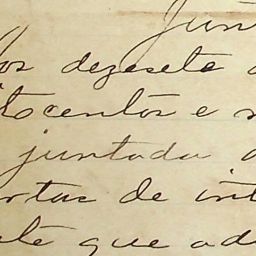 Jun
os dezesete d
itocentos e n
juntada d
rtas de int
ate que ad